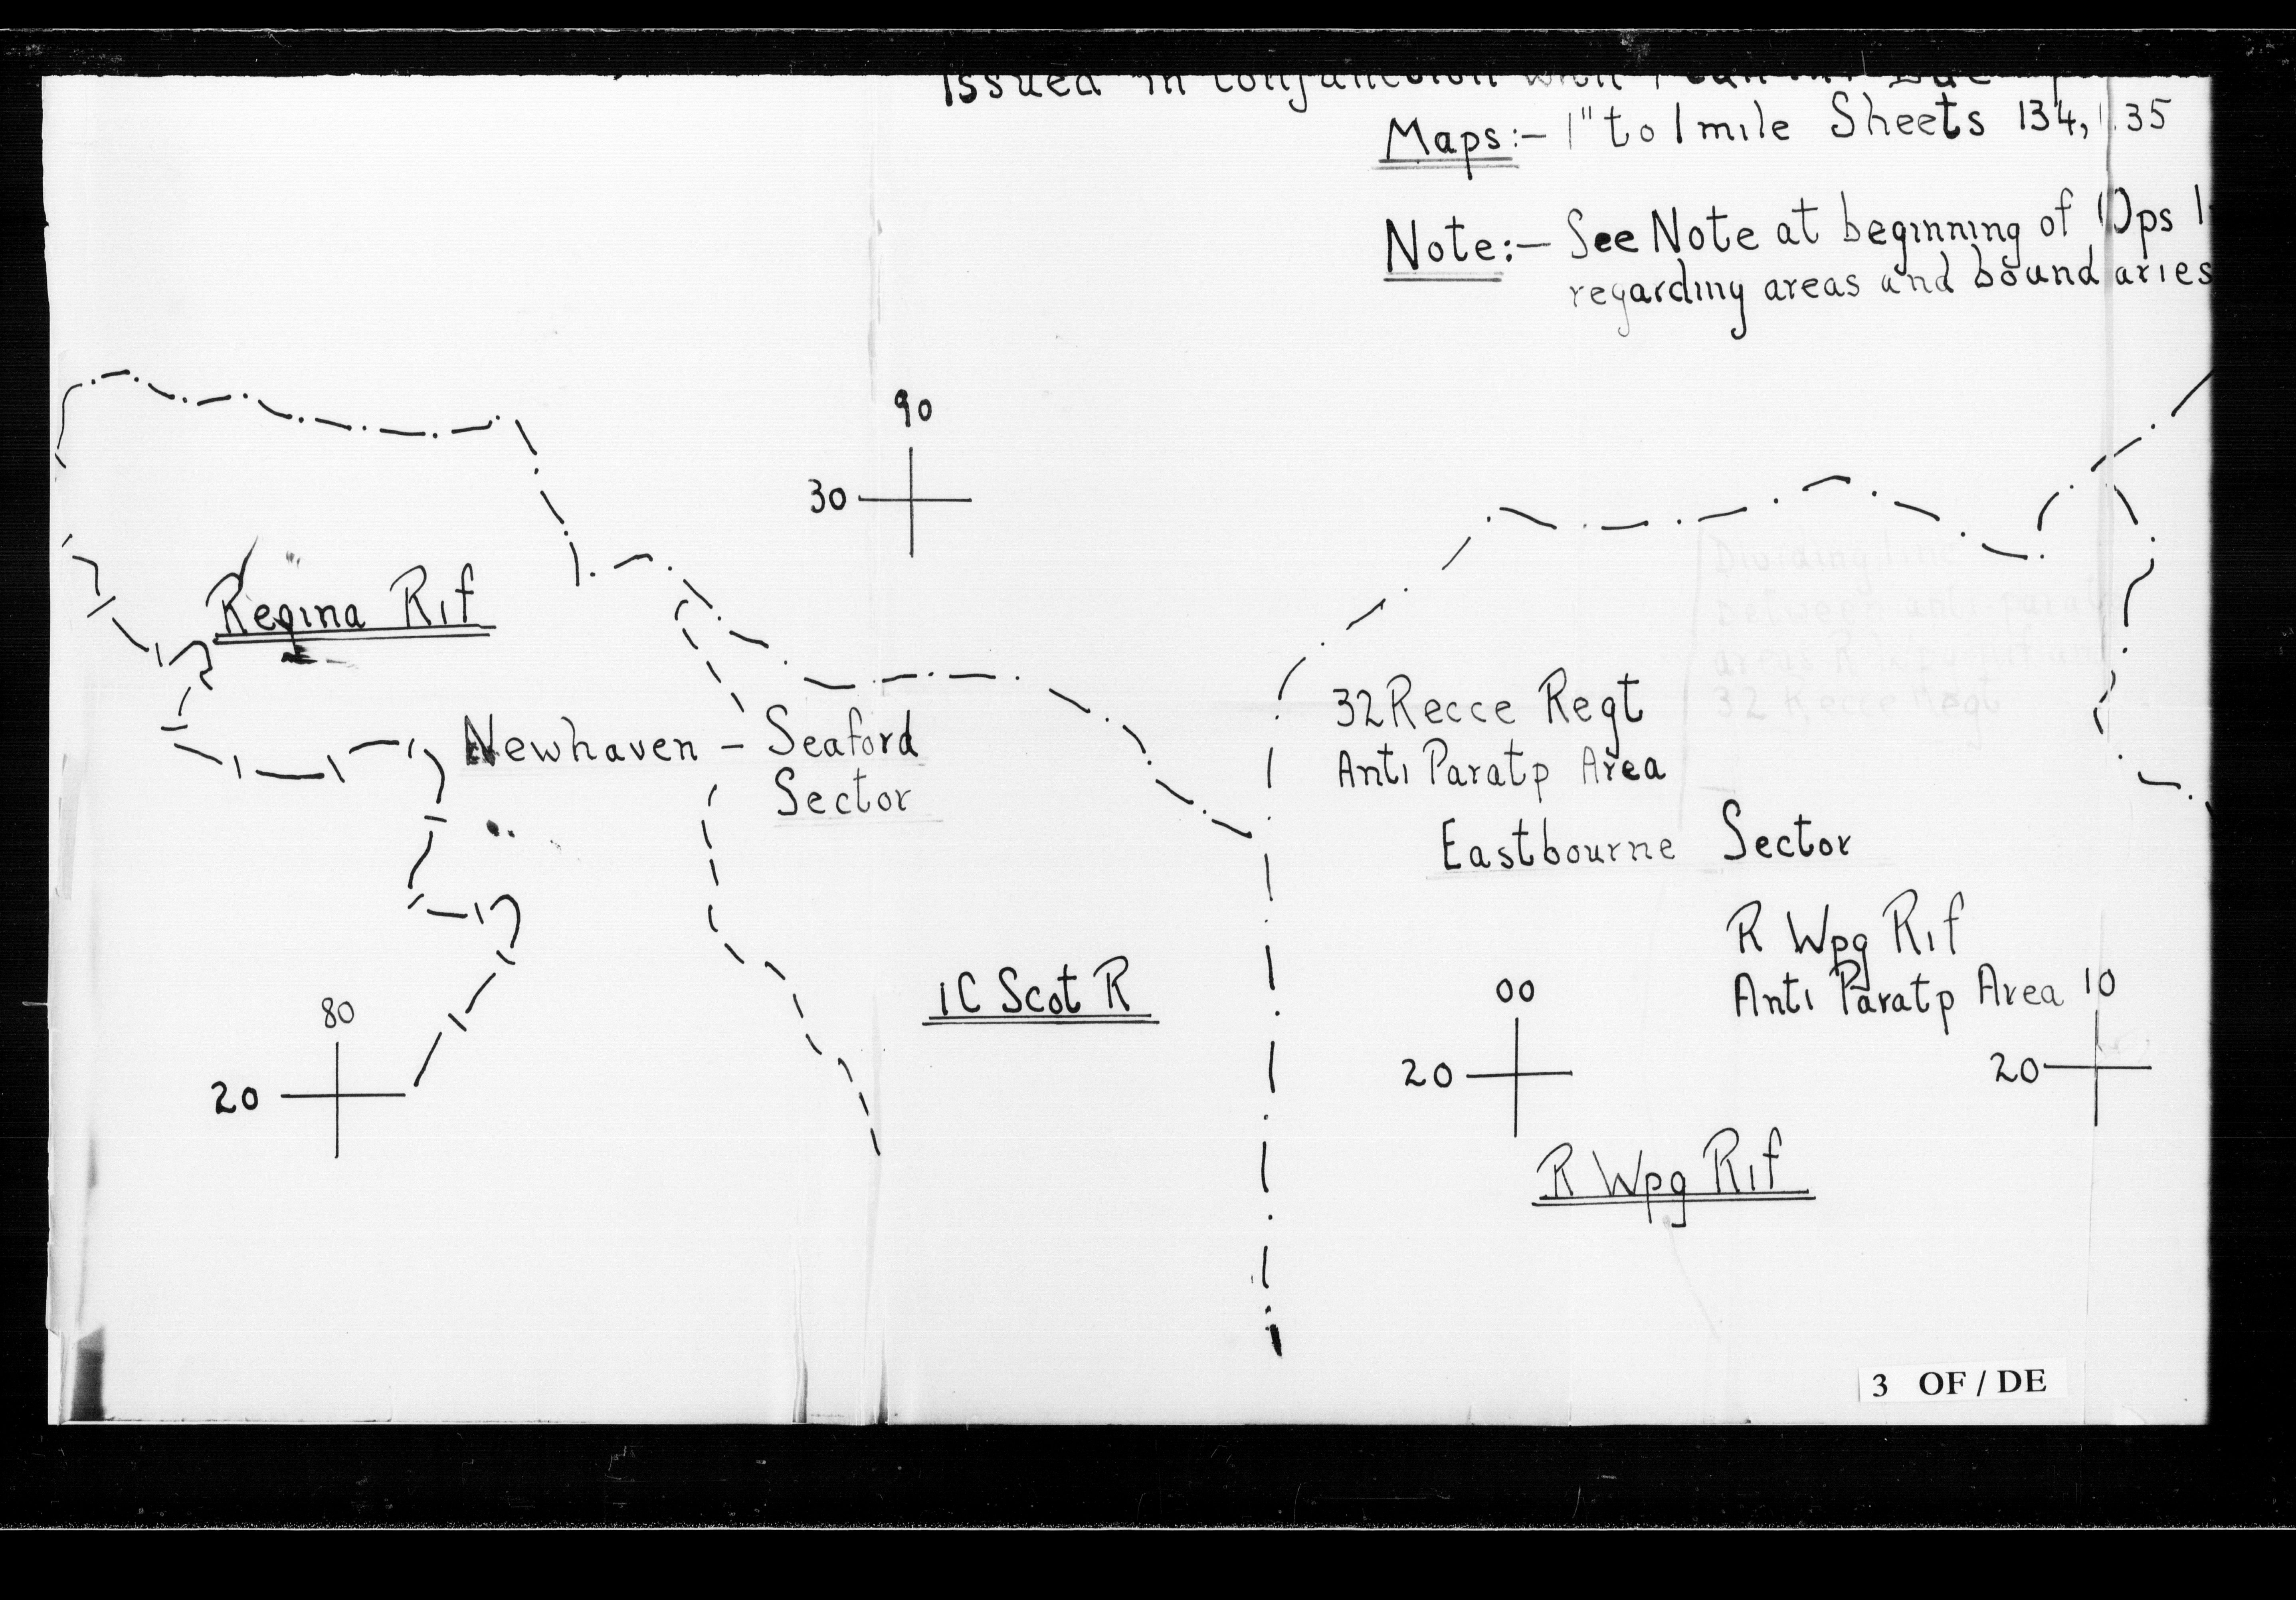 Issued in conjunction with
Maps:- 1" to 1 mile Sheets 134, 135
Note:- See Note at beginning of Ops 1
regarding areas and boundaries
90
30
Dividing line
between anti-parat
areas R Wpg Rif and
32 Recce Regt
Regina Rif
32 Recce Regt
Anti Paratp Area
Newhaven - Seaford
Sector
Eastbourne Sector
R Wpg Rif
Anti Paratp Area
1 C Scot R
80
20
00
20
10
20
R Wpg Rif
3 OF / DE